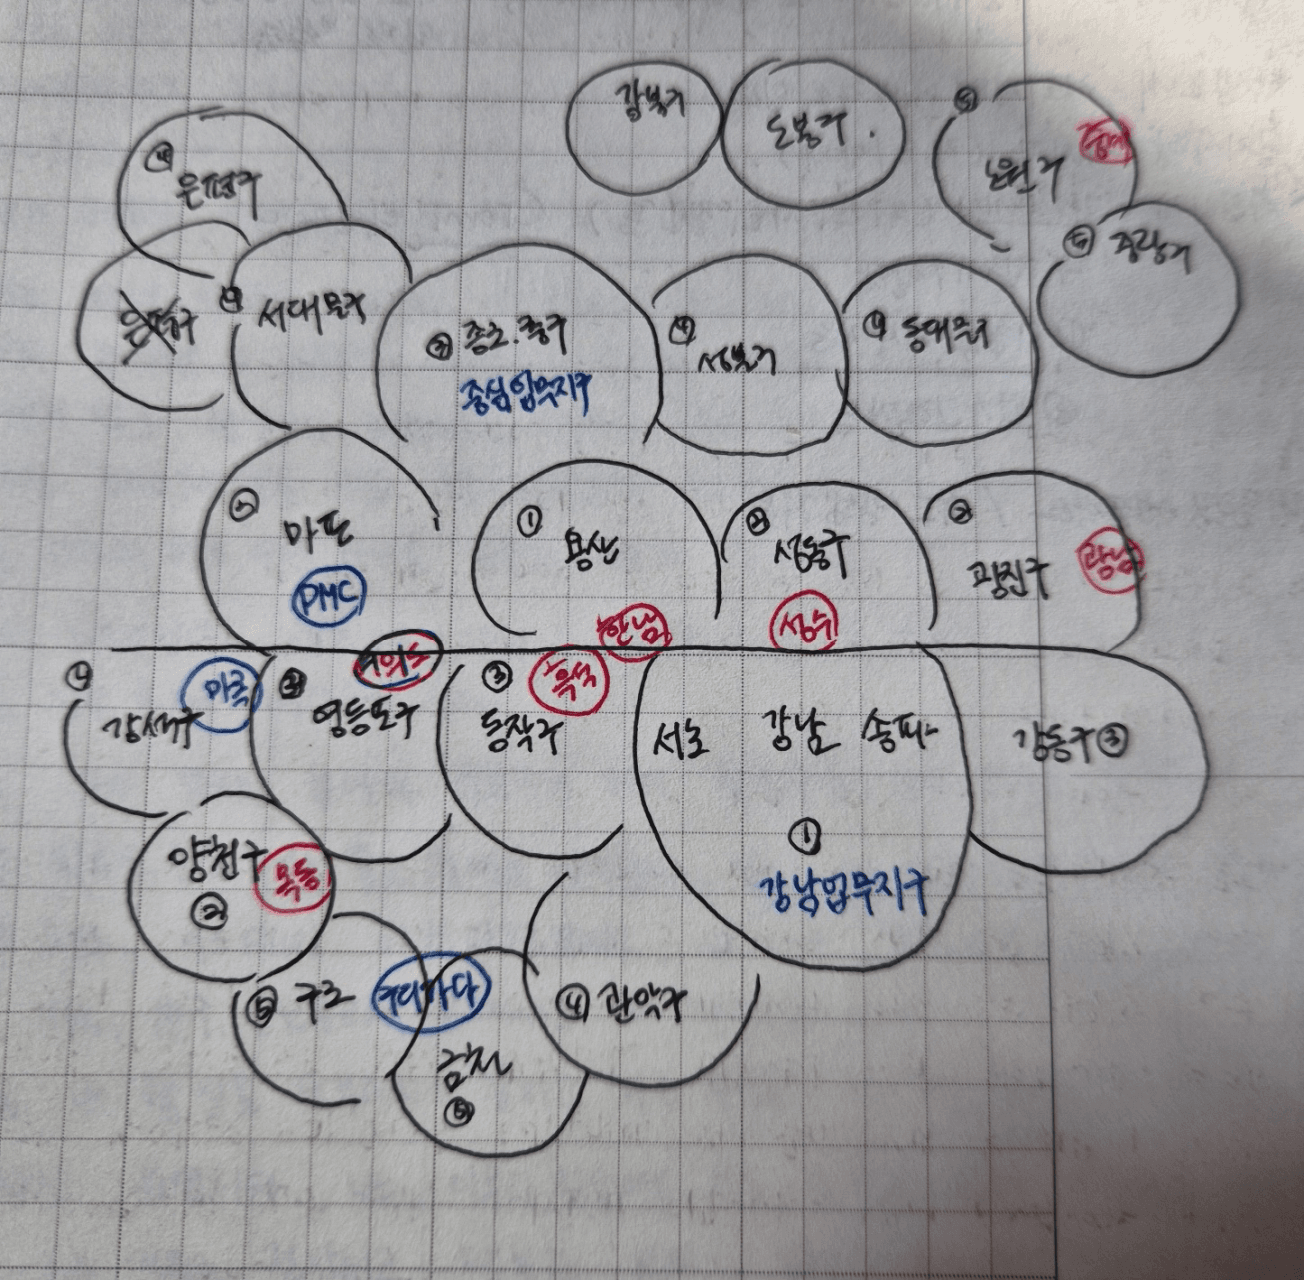 강북구
도봉구.
⑤
노원구
중계
④
은평구
⑤ 중랑구
④ 서대문구
③ 종로.중구
중심업무지구
④
성북구
④ 동대문구
②
마포
DMC
①
용산
한남
②
성동구
성수
②
광진구
광남
④
강서구
마곡
여의도
영등포구
③
흑석
동작구
서초 강남 송파
①
강남업무지구
강동구③
양천구
②
목동
⑤ 구로
구디가디
금천
⑤
④ 관악구